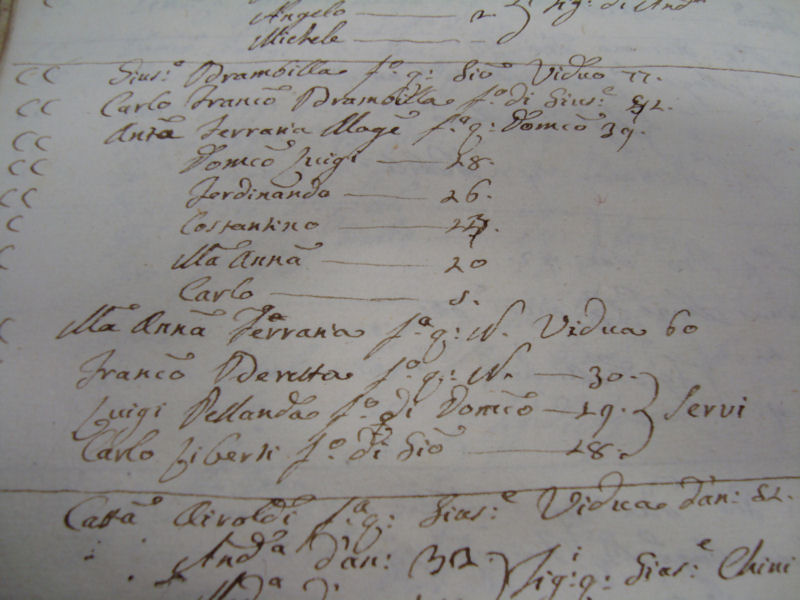 Angelo — 2
Michele —
CC Gius:e Brambilla f.o q: Gio: Viduo 77.
CC Carlo Franc:o Brambilla f.o di Gius:e 52.
CC Ant:a Ferraria Mog:e f.a q: Dom:co 39.
CC Dom:co Luigi — 28.
CC Ferdinando — 26.
C Costantino —
C M:a Anna — 20
Carlo — 8.
C M:a Anna Ferraria f.a q: N. Vidua 60
Franc:o Beretta f.o q: N. — 30.
Luigi Pellanda f.o di Dom:co — 29. Servi
Carlo Liberti f.o di Gio: — 28.
Catt:a Airoldi f.a q: Gius:e Vidua d'an: 82.
And:a d'an: Fig:i q: Gius:e Chini